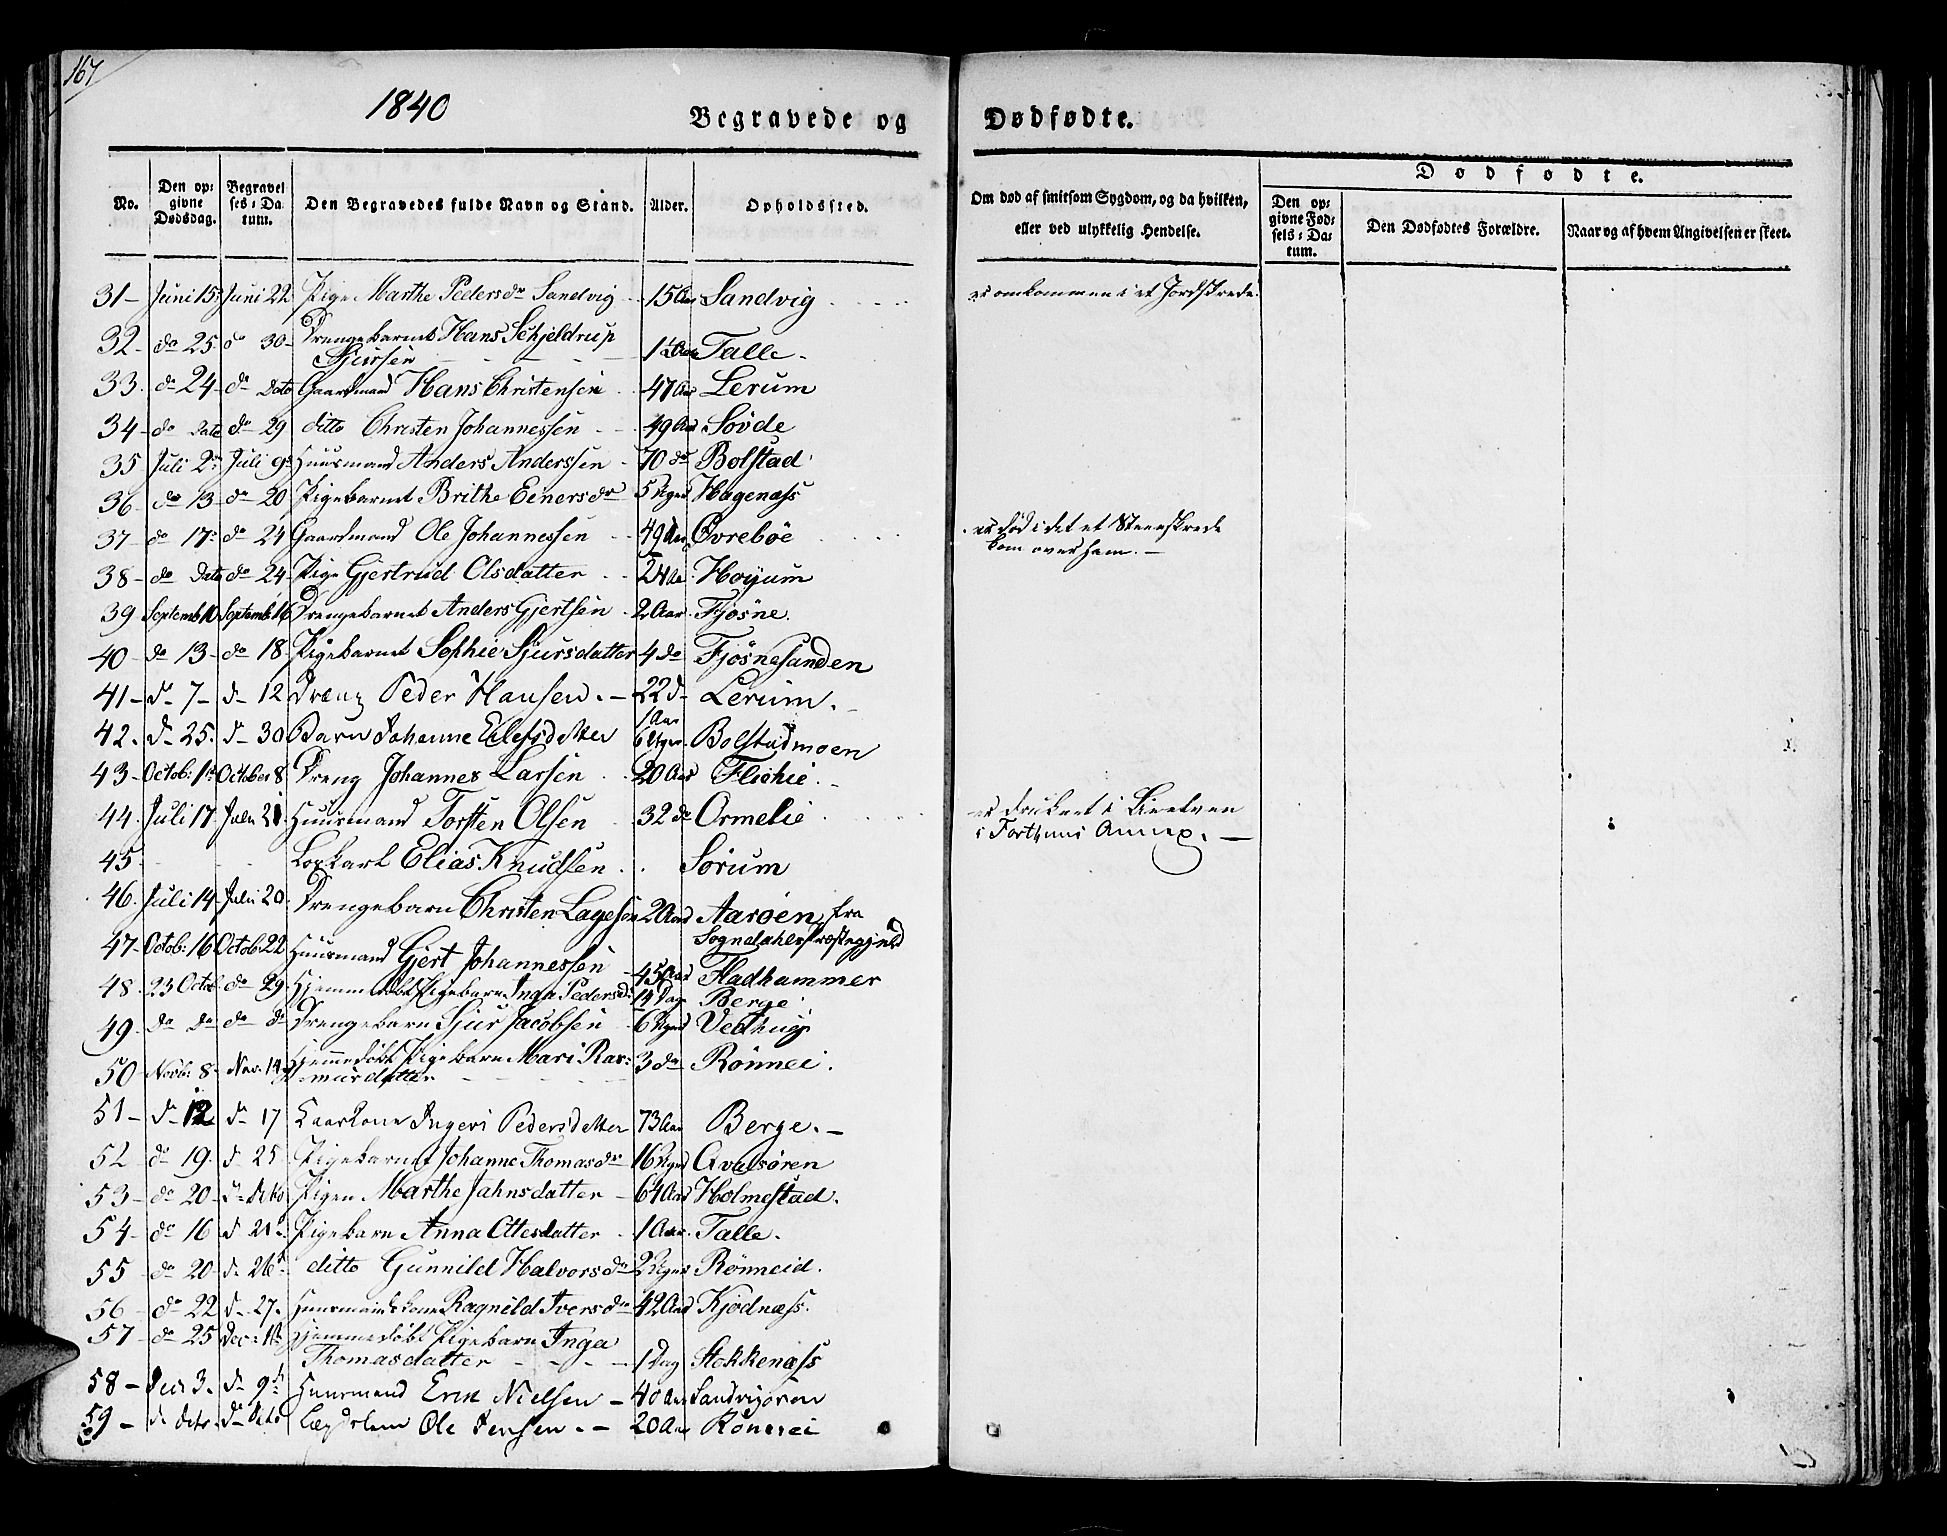 167
1840
Begravede og Dødfødte.
No. Den opgivne Dødsdag. Begravelses-Datum. Den Begravedes fulde Navn og Stand. Alder. Opholdssted. Om død af smitsom Sygdom, og da hvilken, eller ved ulykkelig Hendelse. Dødfødte.
Den opgivne Fødsels-Datum. Den Dødfødtes Forældre. Naar og af hvem Angivelsen er skeet.
31 - Juni 15 Juni 22 Pige Marthe Pedersdr Sandvig 15 Aar Sandvig er omkommen i et Jordskrede.
32 - do 25 do 30 - Drengebarnet Hans Schjeldrup
Sjursen - 1½ Aar Talle -
33. do 24 - do Dato Gaardmand Hans Christensen 47 Aar Lerum
34 - do Dato do 29 ditto Christen Johannessen 49 Aar Søvde
35 Juli 2 Juli 9 Huusmand Anders Anderssen - 70 do Bolstad
36 - do 13 - do 20 Pigebarnet Brithe Einersdr 5 Uger Hagenæss
37 - do 17 - do 24 Gaardmand Ole Johannessen 49 Aar Øvrebøe er død i det et Steenskrede
kom over ham. -
38 - do Dato do 24 Pige Gjertrud Olsdatter 24 Aar Høyum
39 Septemb 10 Septemb 16 Drengebarnet Anders Gjertsen - 2 Aar Fjøsne.
40 - do 13 - do 18 Pigebarnet Sophie Sjursdatter 4 do Fjøsnesanden
41 - do 7 - do 12 Dreng Peder Hansen. - 22 do Lerum. -
42. do 25. do 30 Barn Johanne Eilefsdatter 1 Aar 6 Uger Bolstadmoen
43 - Octob: 1 October 8 Dreng Johannes Larsen 20 Aar Flohie. -
44. Juli 17 Julii 21 Huusmand Torsten Olsen 32 do Ormelie er druknet i Lieelven
i Forthuns Annex. -
45 - Løskarl Elias Knudsen Sørum
46. Juli 14 Julii 20 Drengebarn Christen Lagesøn 2 Aar Aarøen fra
Sogndahls Præstegjeld
47 - Octob: 16 Octob: 22 Huusmand Gjert Johannessen - 45 Aar Fladhammer
48. 23 Octob do 29 Hjemmedøbt Pigebarn Inga Pedersdr 14 Dag Berge
49. do do do do Drengebarn Sjur Jacobsen - 6 Uger Vedhug
50 Novb: 8 - Nov: 14 Hjemmedøbt Pigebarn Mari Ras:
musdatter - 3 do Rønnei.
51 - do 12 do 17 Kaarkone Ingeri Pedersdatter 73 Aar Berge. -
52 - do 19. do 25 Pigebarnet Johanne Thomasdr 16 Uger Qvalsøren
53 - do 20 - do Dito Pigen Marthe Jahnsdatter - 64 Aar Holmestad.
54 - do 16 do 21 Pigebarn Anna Ottesdatter - 1 Aar. Talle.
55 - do 20 - do 26 ditto Gunnild Halvorsdr 2 Uger Rønneid.
56 - do 22 do 27. Huusmandskone Ragnild Iversdr 42 Aar Kjødnæss.
57 - do 25 Dec: 1 Hjemmedøbt Pigebarn Inga
Thomasdatter - 1 Dag Stokkenæss
58 - Decb 3. do 9 Huusmand Erik Nielsen - 40 Aar Sandvigøren
59 - do Dito. do Dito Lægdslem Ole Jensen. - 20 Aar Rønnei